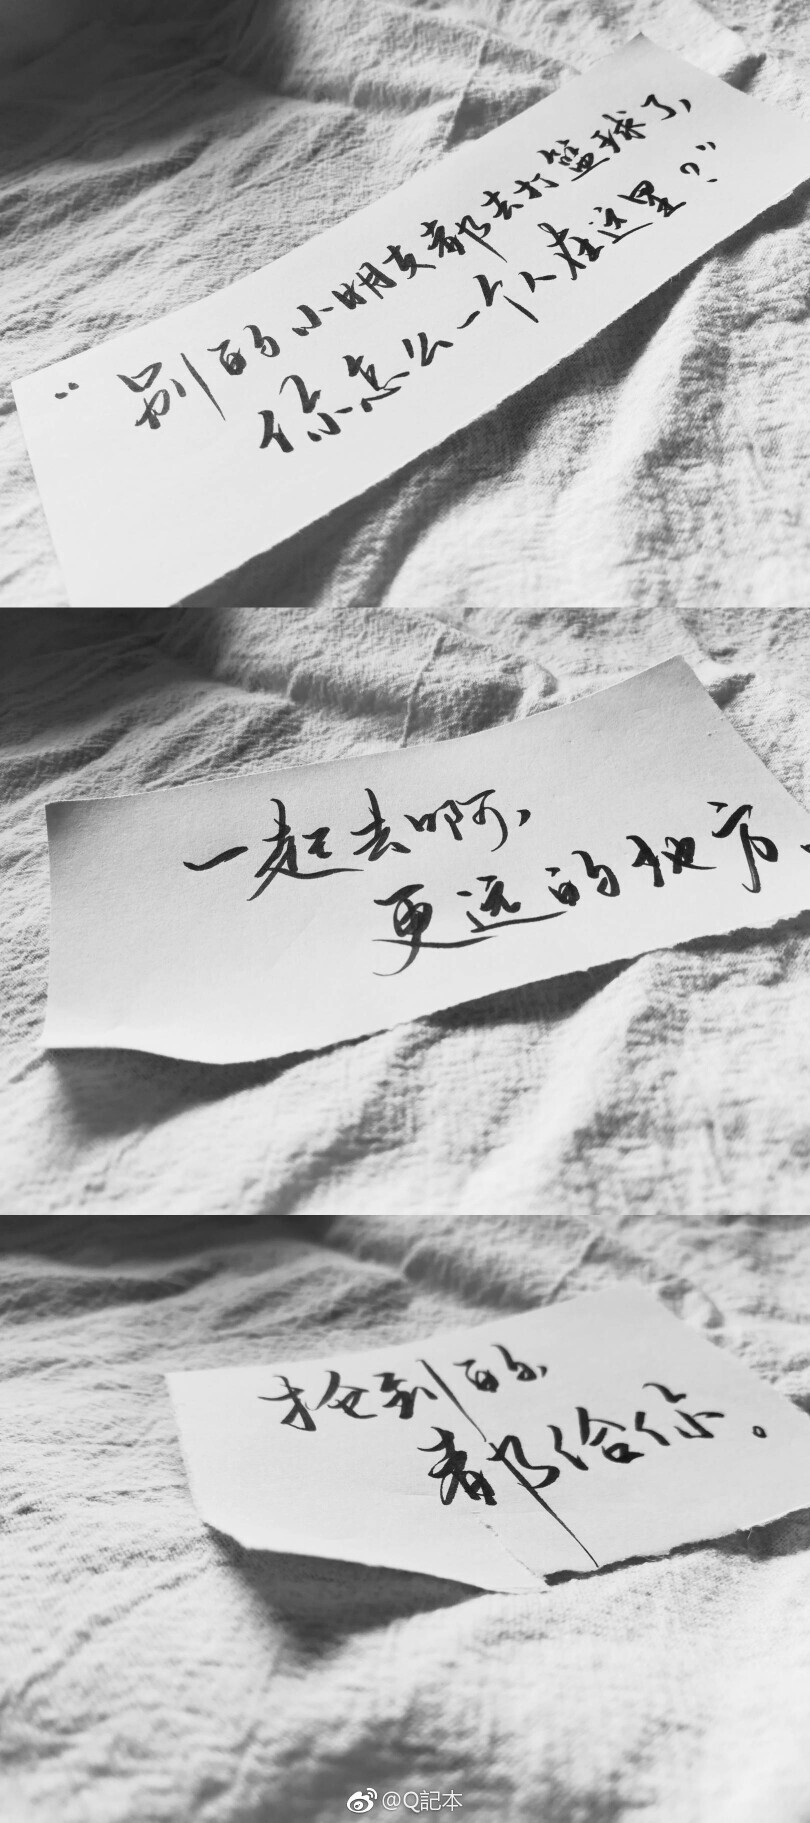 “别的小朋友都去打篮球了,
你怎么一个人在这里?”
一起去啊,
更远的地方.
抢到的,
都给你。
@Q記本